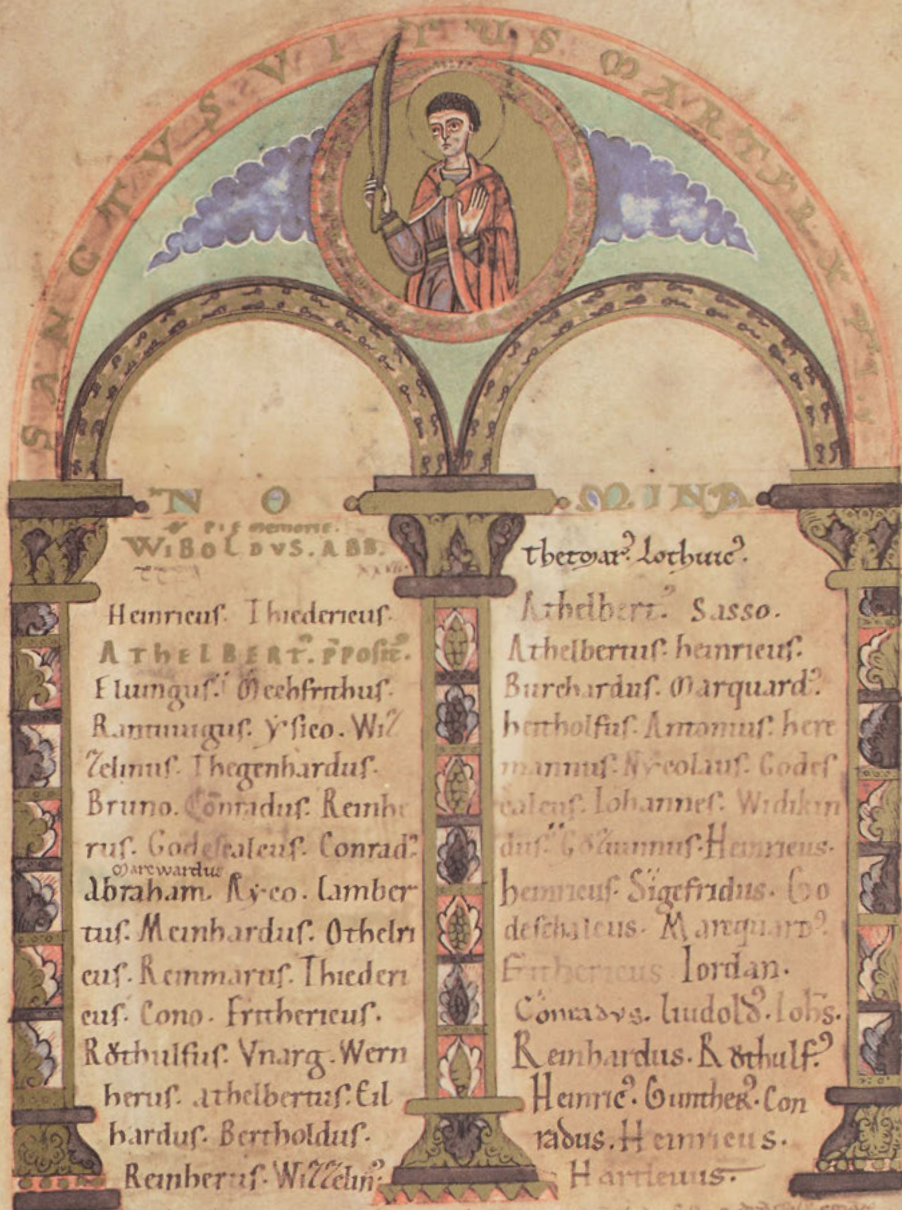 SANCTVS VITUS MARTYR XPI
NOMINA
PIE memorie.
WIBOLDVS. ABB.
Heinricus. Thiedericus.
AThELBERT᾽. P̄Posit᾽.
Elungus. Mechfrithus.
ysico. Wil
lelmus. Thegenhardus.
Bruno. Cōnradus. Reinbe
rus. Godescalcus. Conrad᾽.
Marcwardus
Abraham. Ryco. Lamber
tus. Meinhardus. Othelri
cus. Reinmarus. Thiederi
cus. Cono. Frithericus.
Rŏthulfus. Vnarg. Wern
herus. athelbertus. Eil
hardus. Bertholdus.
Reinberus. Willelm᾽.
thetmar᾽. Lothuic᾽.
Athelbert᾽. Sasso.
Athelbertus. heinricus.
Burchardus. Marquard᾽.
bertholfus. Antonius. here
mannus. Nycolaus. Godes
calcus. Iohannes. Widikin
dus. Heinricus.
heinricus. Sigefridus. Go
deschalcus. Marcquard᾽.
Frithericus Iordan.
Conradvs. Ludolf᾽. Ioh̄s.
Reinhardus. Rŏthulf᾽.
Heinric᾽. Gunther᾽. Con
radus. Heinricus.
Hartleuus.